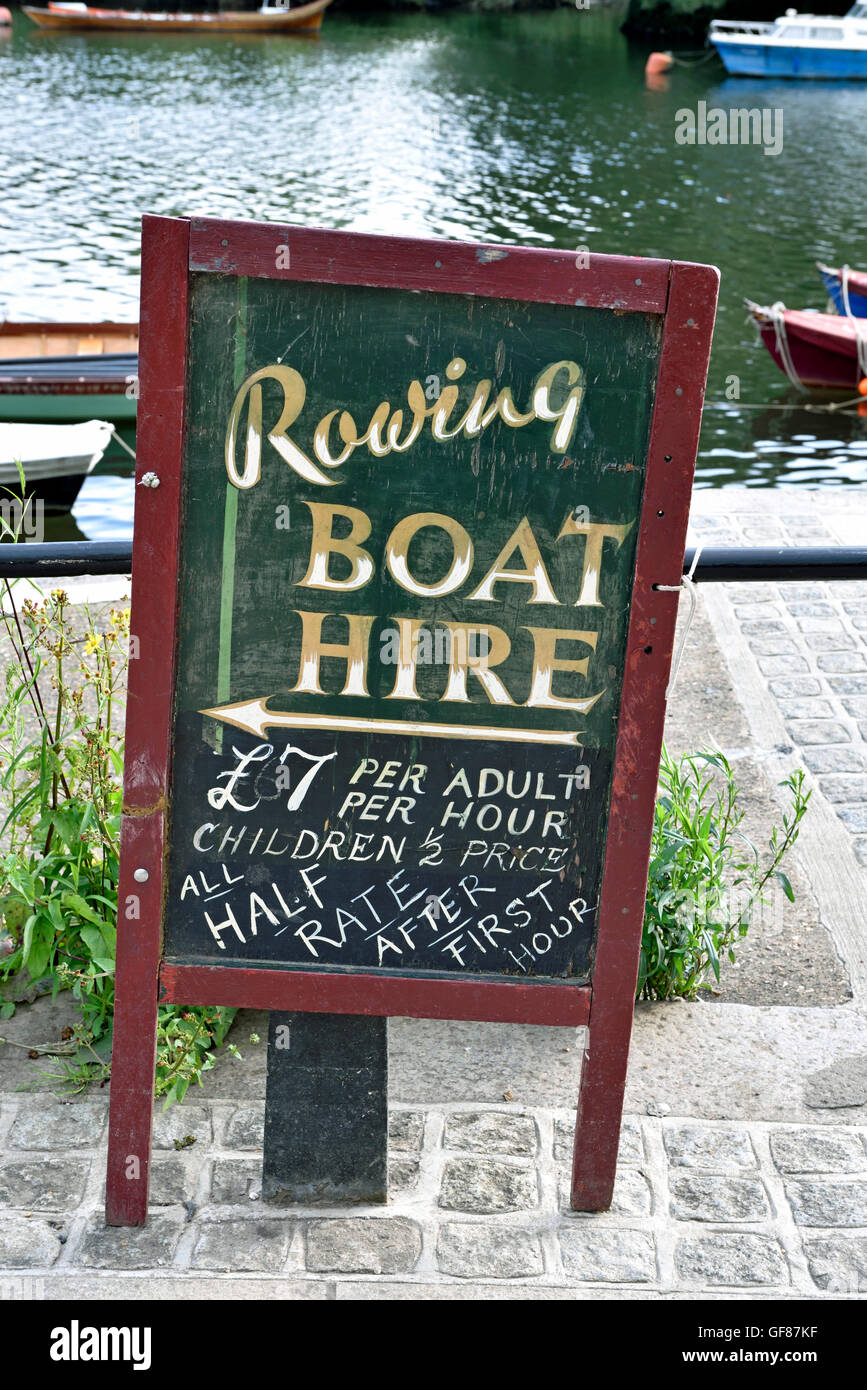 Rowing
BOAT
HIRE
£7 PER ADULT
PER HOUR
CHILDREN ½ PRICE
ALL HALF RATE AFTER FIRST HOUR
alamy
alamy
Image ID: GF87KF
www.alamy.com